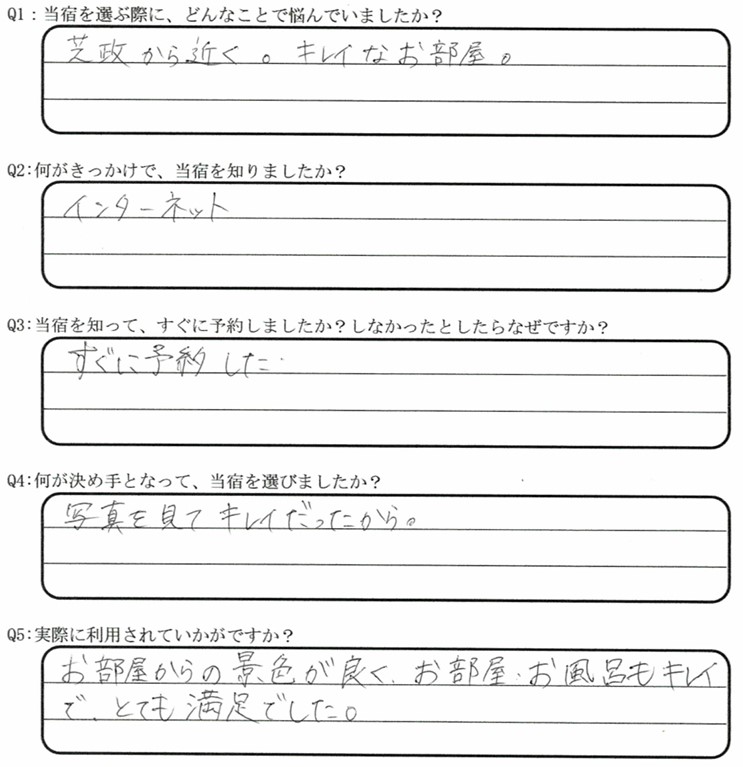 Q1：当宿を選ぶ際に、どんなことで悩んでいましたか？
芝政から近く。キレイなお部屋。
Q2：何がきっかけで、当宿を知りましたか？
インターネット
Q3：当宿を知って、すぐに予約しましたか？しなかったとしたらなぜですか？
すぐに予約した.
Q4：何が決め手となって、当宿を選びましたか？
写真を見てキレイだったから。
Q5：実際に利用されていかがですか？
お部屋からの景色が良く、お部屋・お風呂もキレイ
で、とても満足でした。